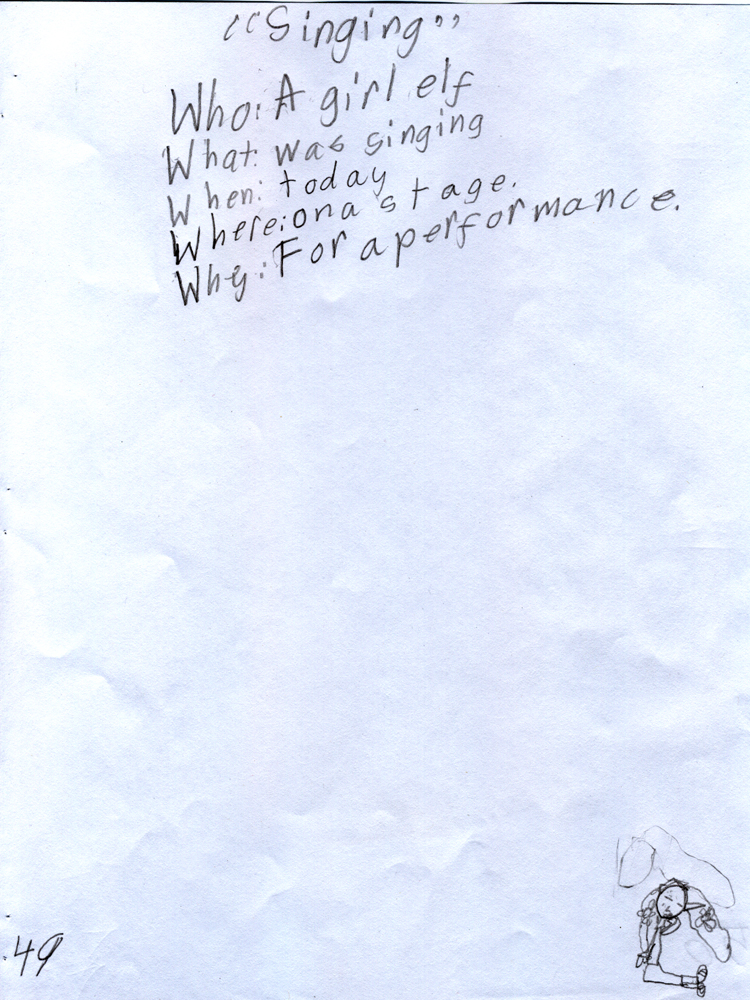 “Singing”
Who: A girl elf
What: was singing
When: today
Where: on a stage.
Why: For a performance.
49